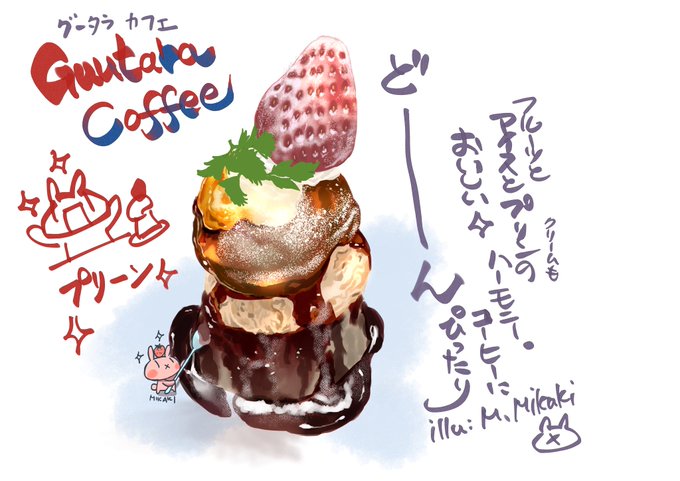 グータラ カフェ
Guutara
Coffee
プリーン
どーーん
フルーツと
アイスとプリンの
クリームも
ハーモニー。
おいしい
コーヒーに
ぴったり
illu: M. Mikaki
MIKAKI